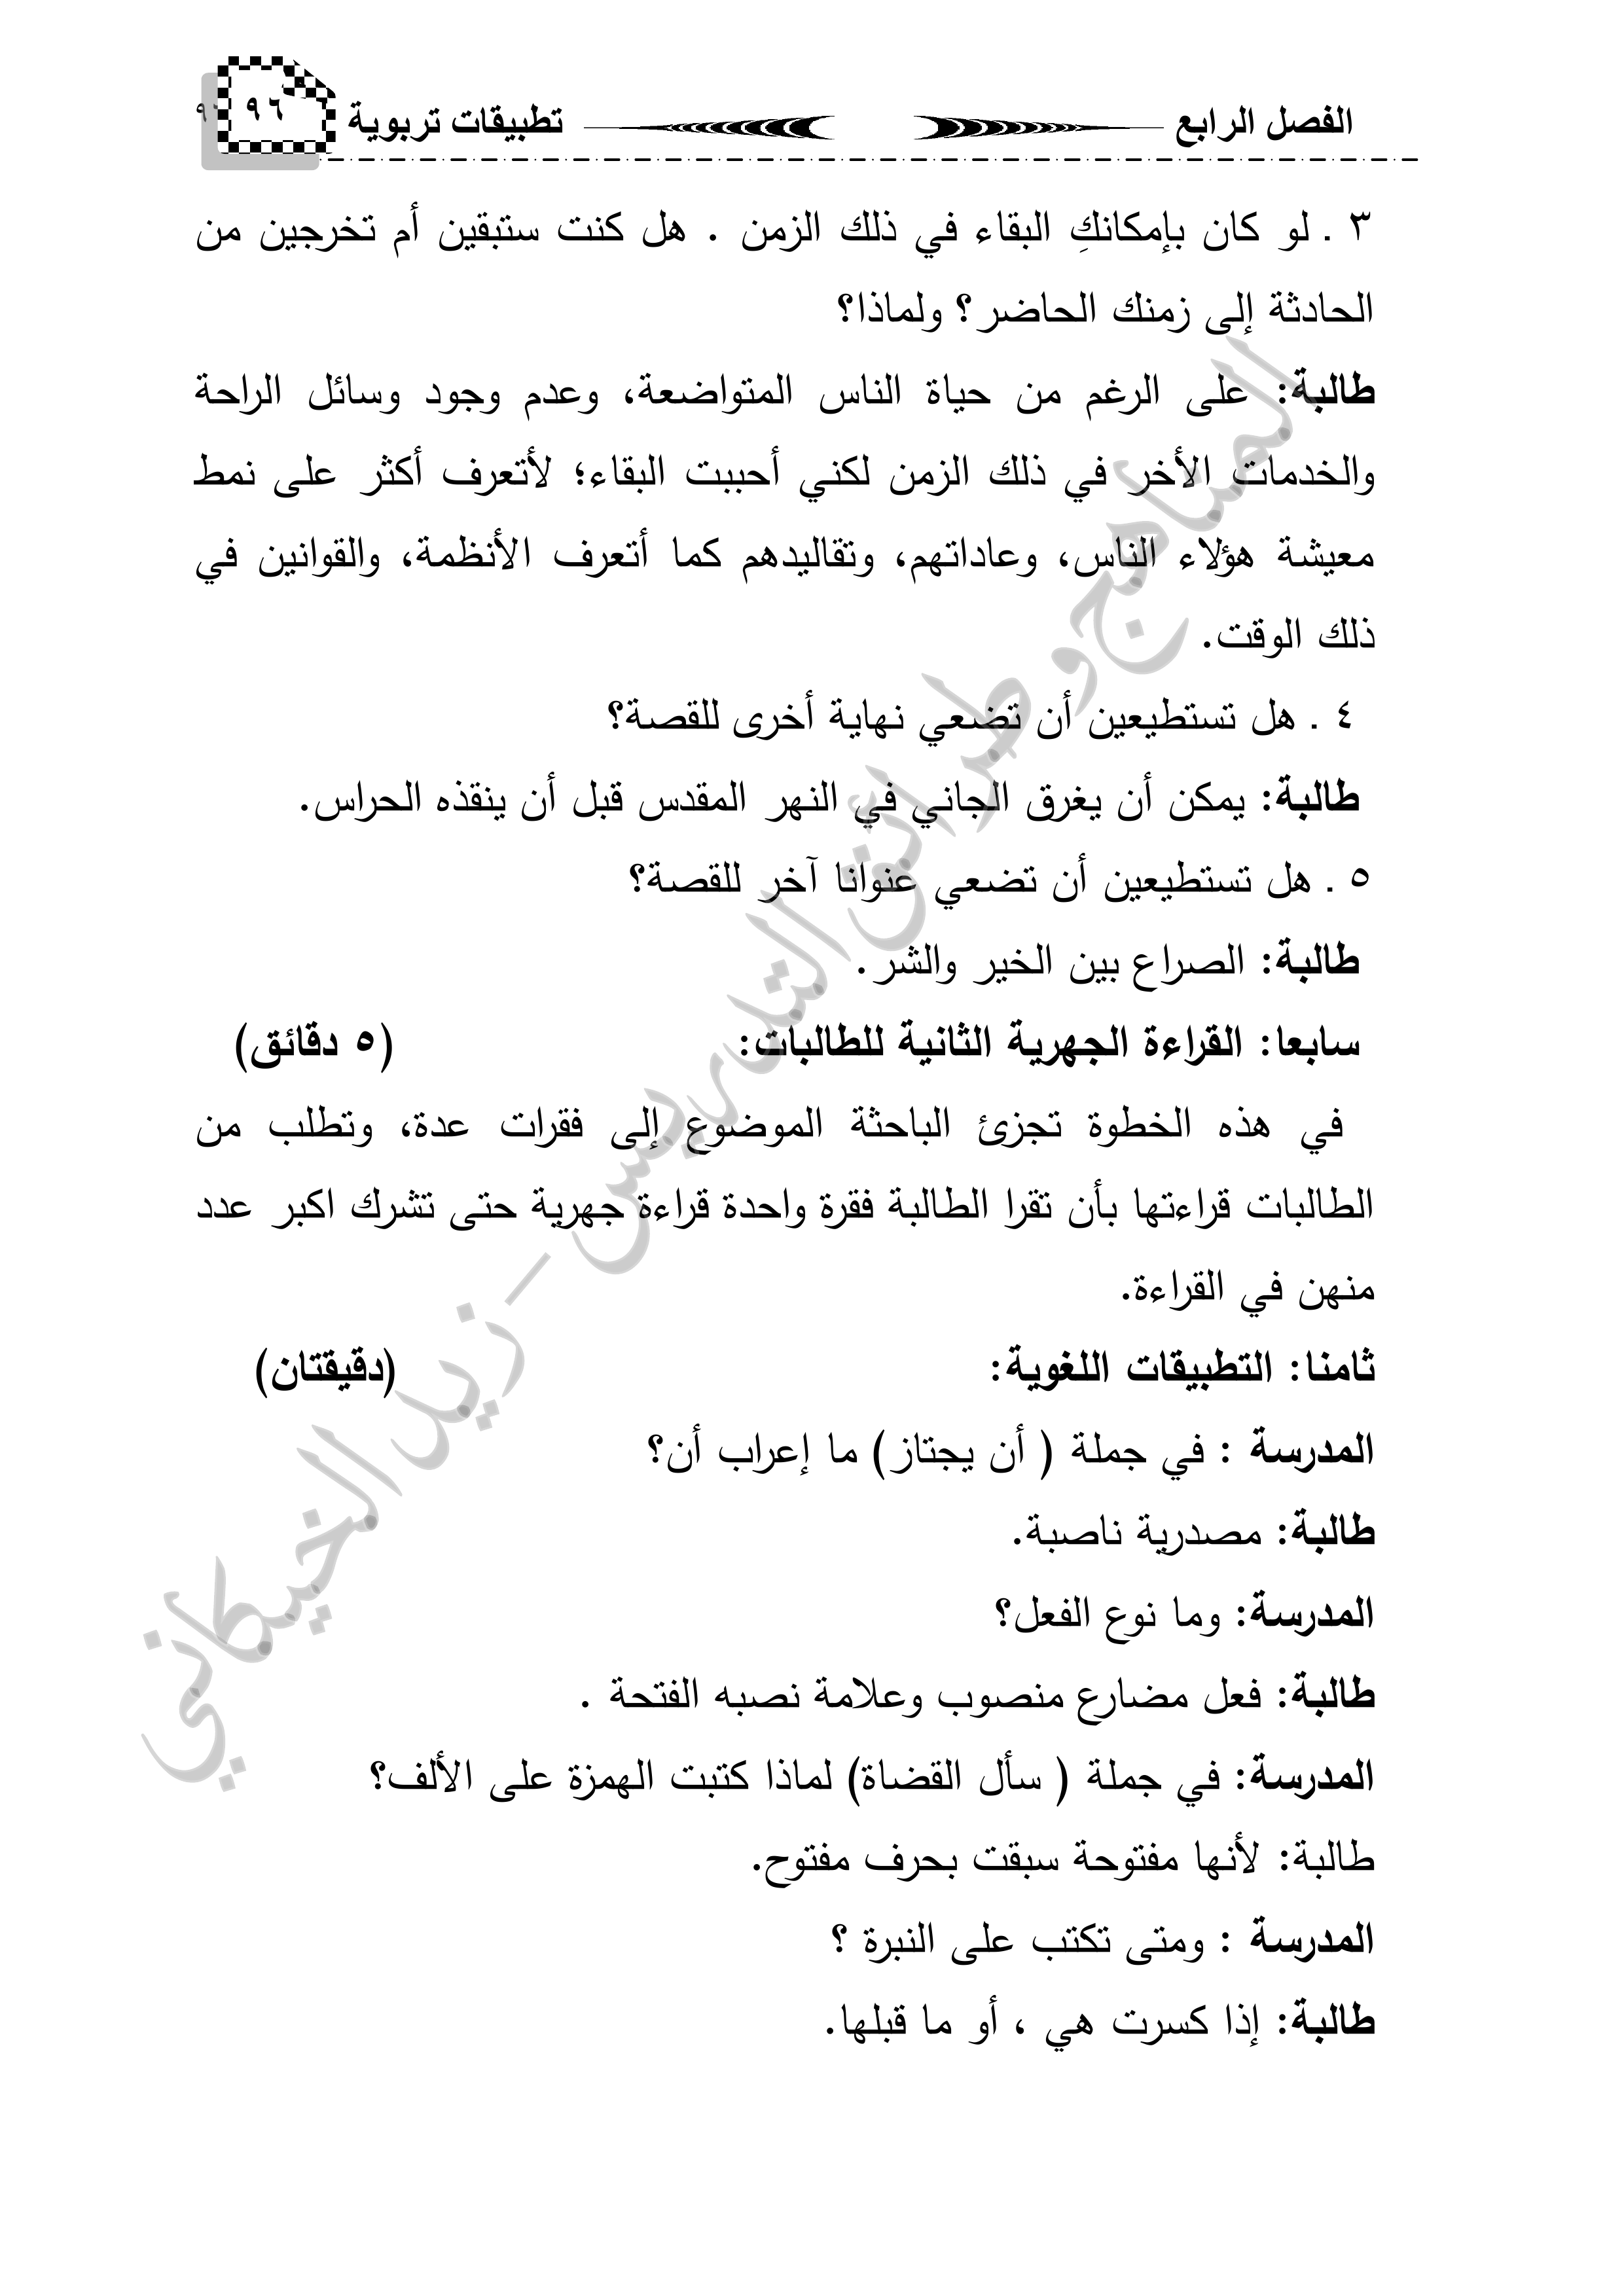 الفصل الرابع تطبيقات تربوية ٩٦
٣ . لو كان بإمكانكِ البقاء في ذلك الزمن . هل كنت ستبقين أم تخرجين من
الحادثة إلى زمنك الحاضر؟ ولماذا؟
طالبة: على الرغم من حياة الناس المتواضعة، وعدم وجود وسائل الراحة
والخدمات الأخر في ذلك الزمن لكني أحببت البقاء؛ لأتعرف أكثر على نمط
معيشة هؤلاء الناس، وعاداتهم، وتقاليدهم كما أتعرف الأنظمة، والقوانين في
ذلك الوقت.
٤ . هل تستطيعين أن تضعي نهاية أخرى للقصة؟
طالبة: يمكن أن يغرق الجاني في النهر المقدس قبل أن ينقذه الحراس.
٥ . هل تستطيعين أن تضعي عنوانا آخر للقصة؟
طالبة: الصراع بين الخير والشر.
سابعا: القراءة الجهرية الثانية للطالبات: (٥ دقائق)
في هذه الخطوة تجزئ الباحثة الموضوع إلى فقرات عدة، وتطلب من
الطالبات قراءتها بأن تقرا الطالبة فقرة واحدة قراءة جهرية حتى تشرك اكبر عدد
منهن في القراءة.
ثامنا: التطبيقات اللغوية: (دقيقتان)
المدرسة : في جملة ( أن يجتاز) ما إعراب أن؟
طالبة: مصدرية ناصبة.
المدرسة: وما نوع الفعل؟
طالبة: فعل مضارع منصوب وعلامة نصبه الفتحة .
المدرسة: في جملة ( سأل القضاة) لماذا كتبت الهمزة على الألف؟
طالبة: لأنها مفتوحة سبقت بحرف مفتوح.
المدرسة : ومتى تكتب على النبرة ؟
طالبة: إذا كسرت هي ، أو ما قبلها.
المناهج و طرائق التدريس – زيد الخيكاني